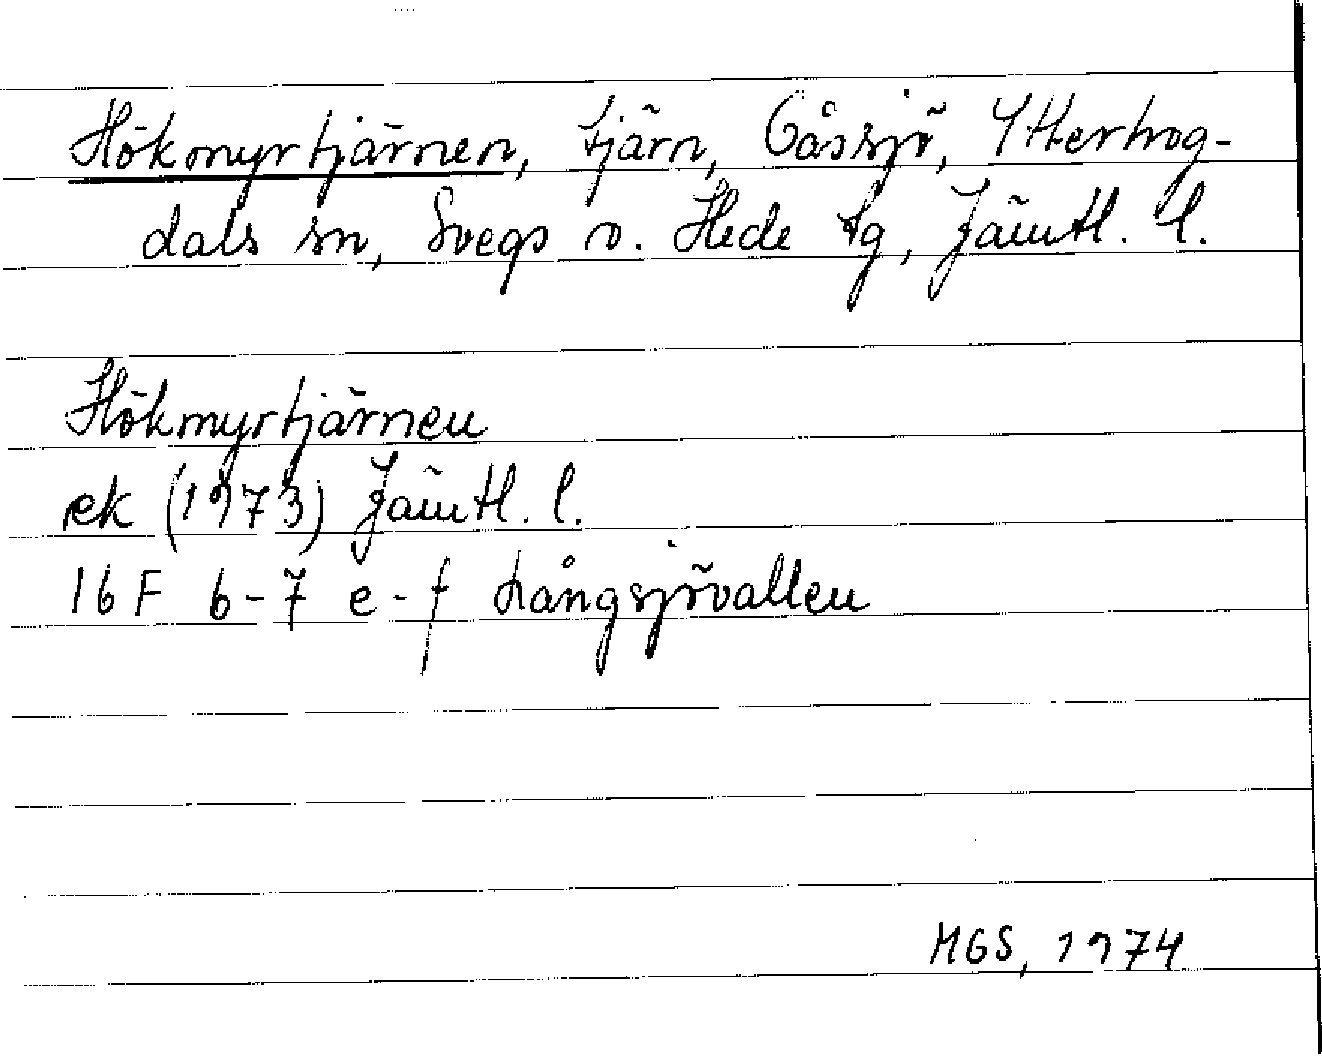 Hökmyrtjärnen, tjärn, Öåssjö, Ytterhog-
dals sn, Svegs o. Hede tg, Jämtl. l.
Hökmyrtjärnen
ek (1973) Jämtl. l.
16F 6-7 e-f Långsjövallen
MGS, 1974